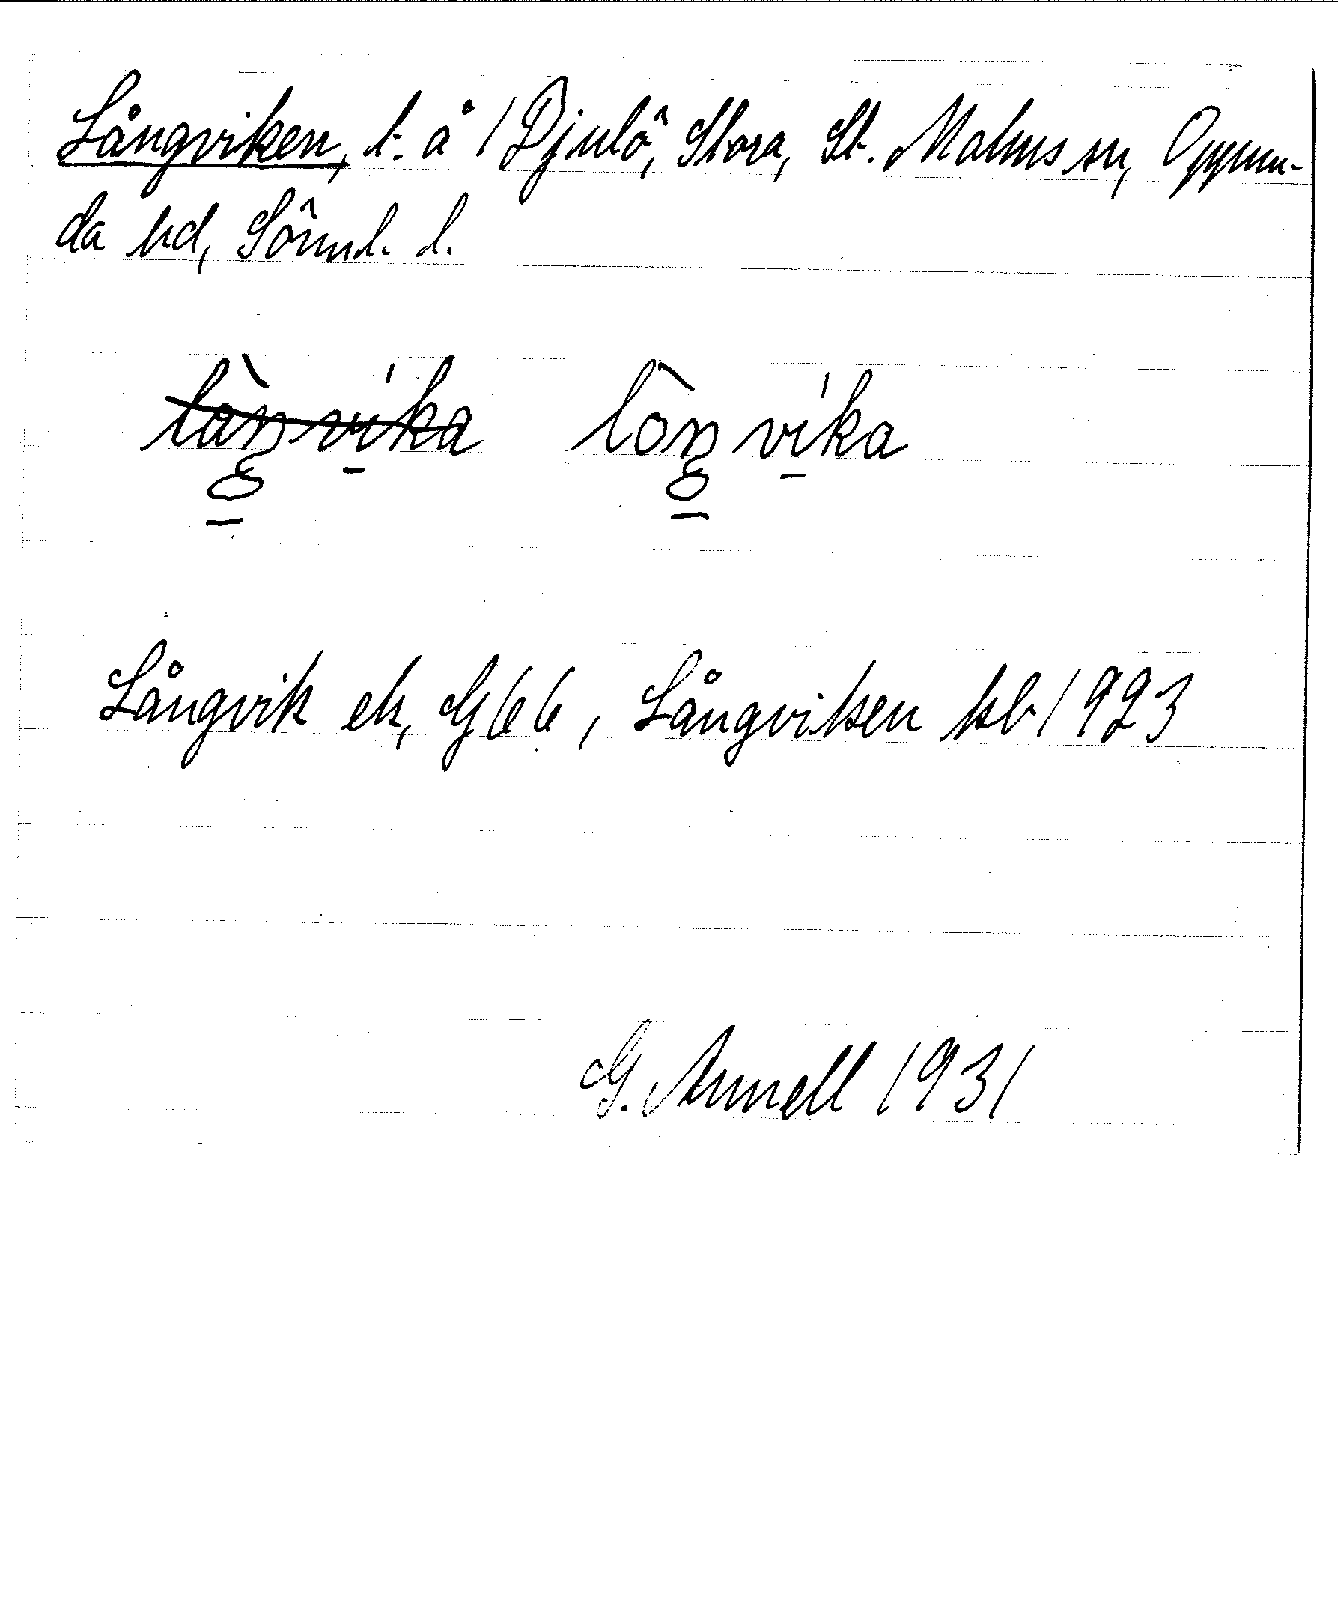 Långviken, t. å 1 Djulö, Stora, St. Malms sn, Oppun-
da hd, Sörml. l.
làŋvi̱ka lòŋvi̱ka
Långvik ek, G 66, Långviken kb 1923
G. Annell 1931